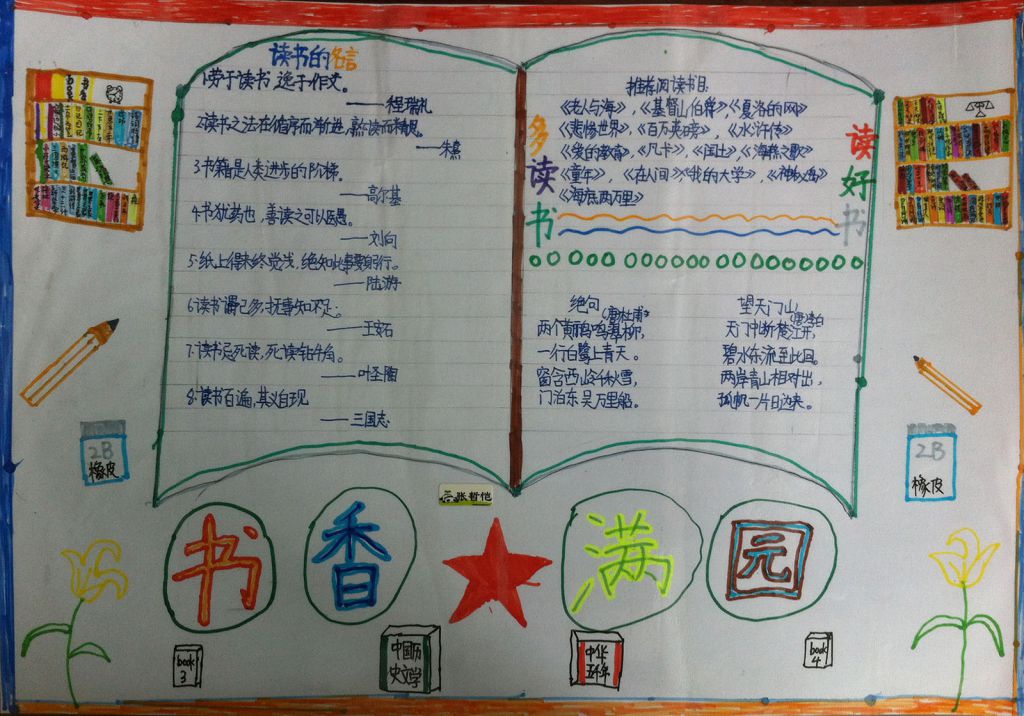 读书的名言
1劳于读书 逸于作文。
——程瑞礼
2.读书之法在循序而渐进,熟读而精思。
——朱熹
3.书籍是人类进步的阶梯。
——高尔基
4.书犹药也,善读之可以医愚。
——刘向
5.纸上得来终觉浅,绝知此事要躬行。
——陆游
6.读书谓已多,抚事知不足。
——王安石
7.读书忌死读,死读钻牛角。
——叶圣陶
8.读书百遍,其义自现
——三国志
多读书
读好书
推荐阅读书目
《老人与海》,《基督山伯爵》,《夏洛的网》
《悲惨世界》,《百万英镑》,《水浒传》
《爱的教育》,《凡卡》,《国土》,《海燕之歌》
《童年》,《在人间》《我的大学》,《神秘岛》
《海底两万里》
绝句
(唐杜甫)
两个黄鹂鸣翠柳,
一行白鹭上青天。
窗含西岭千秋雪,
门泊东吴万里船。
望天门山
(唐李白)
天门中断楚江开,
碧水东流至此回。
两岸青山相对出,
孤帆一片日边来。
2B
橡皮
2B
橡皮
张哲恺
书香满园
book
3
中国历
史文学
中华
五千年
book
4